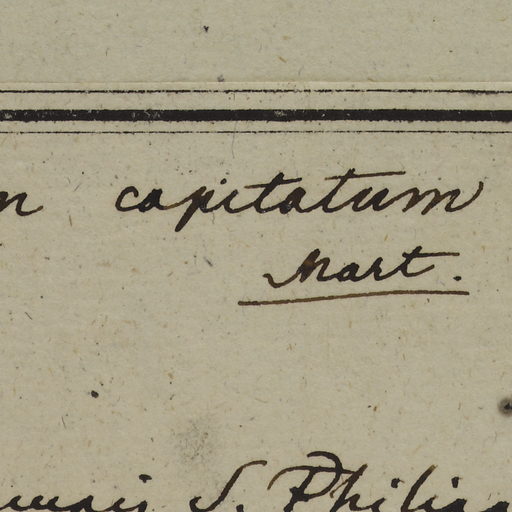 n capitatum
Mart.
S. Philipp